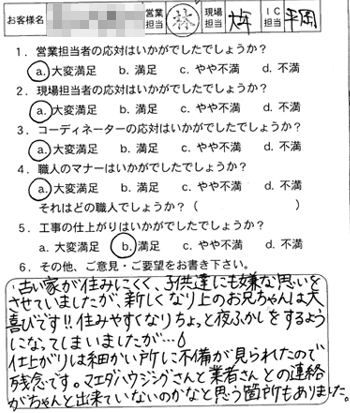 お客様名 営業担当 林 現場担当 大年 IC担当 平岡
1．営業担当者の応対はいかがでしたでしょうか？
a. 大変満足 b. 満足 c. やや不満 d. 不満
2．現場担当者の応対はいかがでしたでしょうか？
a. 大変満足 b. 満足 c. やや不満 d. 不満
3．コーディネーターの応対はいかがでしたでしょうか？
a. 大変満足 b. 満足 c. やや不満 d. 不満
4．職人のマナーはいかがでしたでしょうか？
a. 大変満足 b. 満足 c. やや不満 d. 不満
それはどの職人でしょうか？（ ）
5．工事の仕上がりはいかがでしたでしょうか？
a. 大変満足 b. 満足 c. やや不満 d. 不満
6．その他、ご意見・ご要望をお書き下さい。
古い家が住みにくく、子供達にも嫌な思いを
させていましたが、新しくなり上のお兄ちゃんは大
喜びです!!住みやすくなりちょっと夜ふかしをするよう
になってしまいましたが…
仕上がりは細かい所に不備が見られたので
残念です。マエダハウジングさんと業者さんとの連絡
がちゃんと出来ていないのかなと思う箇所もありました。